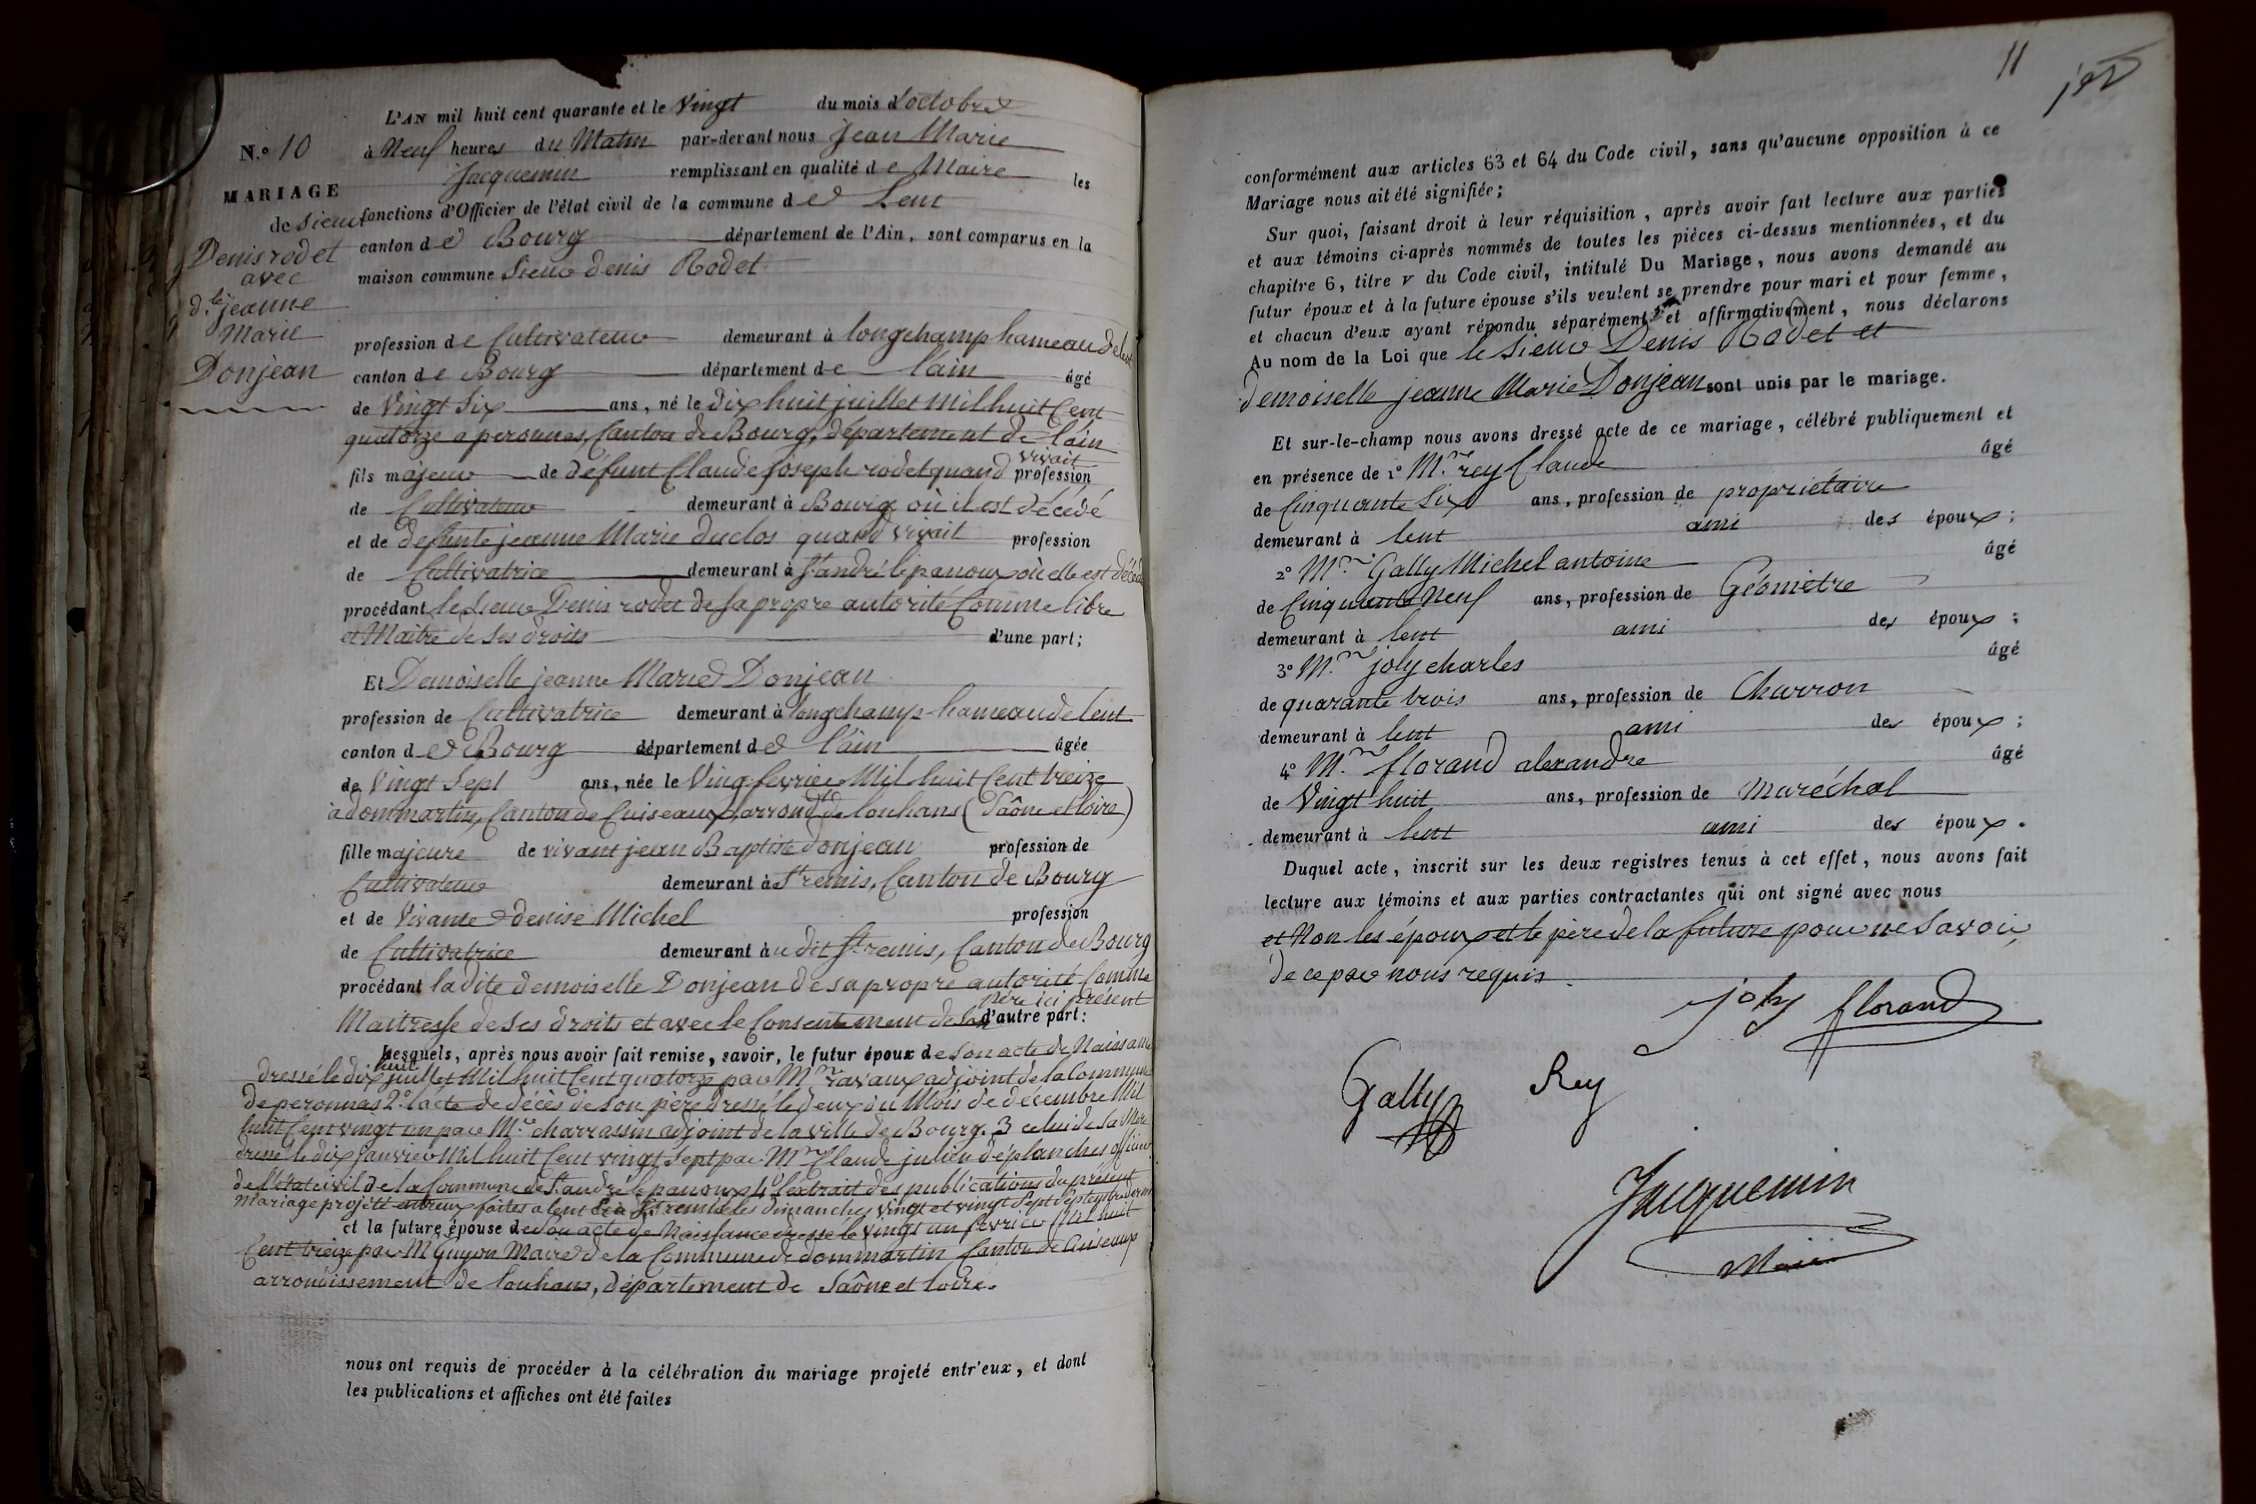 L'AN mil huit cent quarante et le Vingt du mois d'octobre
N.º 10
à Neuf heures du Matin par-devant nous Jean Marie
Jacquemin remplissant en qualité de Maire les
MARIAGE
fonctions d'Officier de l'état civil de la commune de Lent
de sieur
Denis rodet
avec
d.lle jeanne
Marie
Donjean
canton de Bourg département de l'Ain, sont comparus en la
maison commune Sieur denis Rodet
profession de Cultivateur demeurant à longchamp hameau de lent
canton de Bourg département de l'ain âgé
de Vingt Six ans, né le dix huit juillet mil huit Cent
quatorze a peronnas, Canton de Bourg, département de l'ain
fils majeur de défunt Claude Joseph rodet quand vivait profession
de Cultivateur demeurant à Bourg où il est décédé
et de defunte jeanne Marie duclos quand vivait profession
de Cultivatrice demeurant à St andré le panoux où elle est décédé
procédant le Sieur Denis rodet de sa propre autorité Comme libre
et Maitre de Ses droits d'une part;
Et Demoiselle jeanne Marie Donjean
profession de Cultivatrice demeurant à longchamp hameau de lent
canton de Bourg département de l'ain âgée
de Vingt Sept ans, née le Vingt fevrier Mil huit Cent treize
à dommartin, Canton de Cuiseaux, arrond.t de louhans (Saône et loire)
fille majeure de vivant jean Baptiste donjean profession de
Cultivateur demeurant à St remis, Canton de Bourg
et de Vivante denise Michel profession
de Cultivatrice demeurant àu dit St remis, Canton de Bourg
procédant la dite demoiselle Donjean de sa propre autorité Comme
Maitresse de Ses droits et avec le Consentement de son père ici présent d'autre part:
Lesquels, après nous avoir fait remise, savoir, le futur époux de Son acte de Naissance
dressé le dix huit juillet Mil huit Cent quatorze par M.r ravaux adjoint de la Commune
de peronnas 2.º l'acte de décès de Son père dressé le deux du Mois de décembre Mil
huit Cent vingt un par M.r charrassin adjoint de la ville de Bourg. 3 celui de Sa Mère
dressé le dix Janvier Mil huit Cent vingt Sept par M.r Claude julien déplanches officier
de l'état civil de la Commune de St andré le panoux 4º l'extrait des publications du présent
Mariage projeté entreux faites a lent et a St remis les dimanches vingt et vingt Sept Septembre dernier
et la future épouse de Son acte de Naissance dressé le vingt un fevrier Mil huit
Cent treize par M Guyon Maire de la Commune de dommartin Canton de Cuiseaux
arrondissement de louhans, département de Saône et loire.
nous ont requis de procéder à la célébration du mariage projeté entr'eux, et dont
les publications et affiches ont été faites
11
conformément aux articles 63 et 64 du Code civil, sans qu'aucune opposition à ce
Mariage nous ait été signifiée;
Sur quoi, faisant droit à leur réquisition, après avoir fait lecture aux parties
et aux témoins ci-après nommés de toutes les pièces ci-dessus mentionnées, et du
chapitre 6, titre v du Code civil, intitulé Du Mariage, nous avons demandé au
futur époux et à la future épouse s'ils veulent se prendre pour mari et pour femme,
et chacun d'eux ayant répondu séparément et affirmativement, nous déclarons
Au nom de la Loi que le Sieur Denis Rodet et
demoiselle jeanne Marie Donjean sont unis par le mariage.
Et sur-le-champ nous avons dressé acte de ce mariage, célébré publiquement et
en présence de 1º M.r rey Claude âgé
de Cinquante Six ans, profession de propriétaire
demeurant à lent ami des époux;
2º M.r Gally Michel antoine âgé
de Cinquante Neuf ans, profession de Géomètre
demeurant à lent ami des époux;
3º M.r joly charles âgé
de quarante trois ans, profession de Charron
demeurant à lent ami des époux;
4º M.r florand alexandre âgé
de Vingt huit ans, profession de Maréchal
demeurant à lent ami des époux.
Duquel acte, inscrit sur les deux registres tenus à cet effet, nous avons fait
lecture aux témoins et aux parties contractantes qui ont signé avec nous
et Non les époux et le père de la future pour ne Savoir
de ce par nous requis.
joly florand
Gally Rey
Jacquemin
Maire